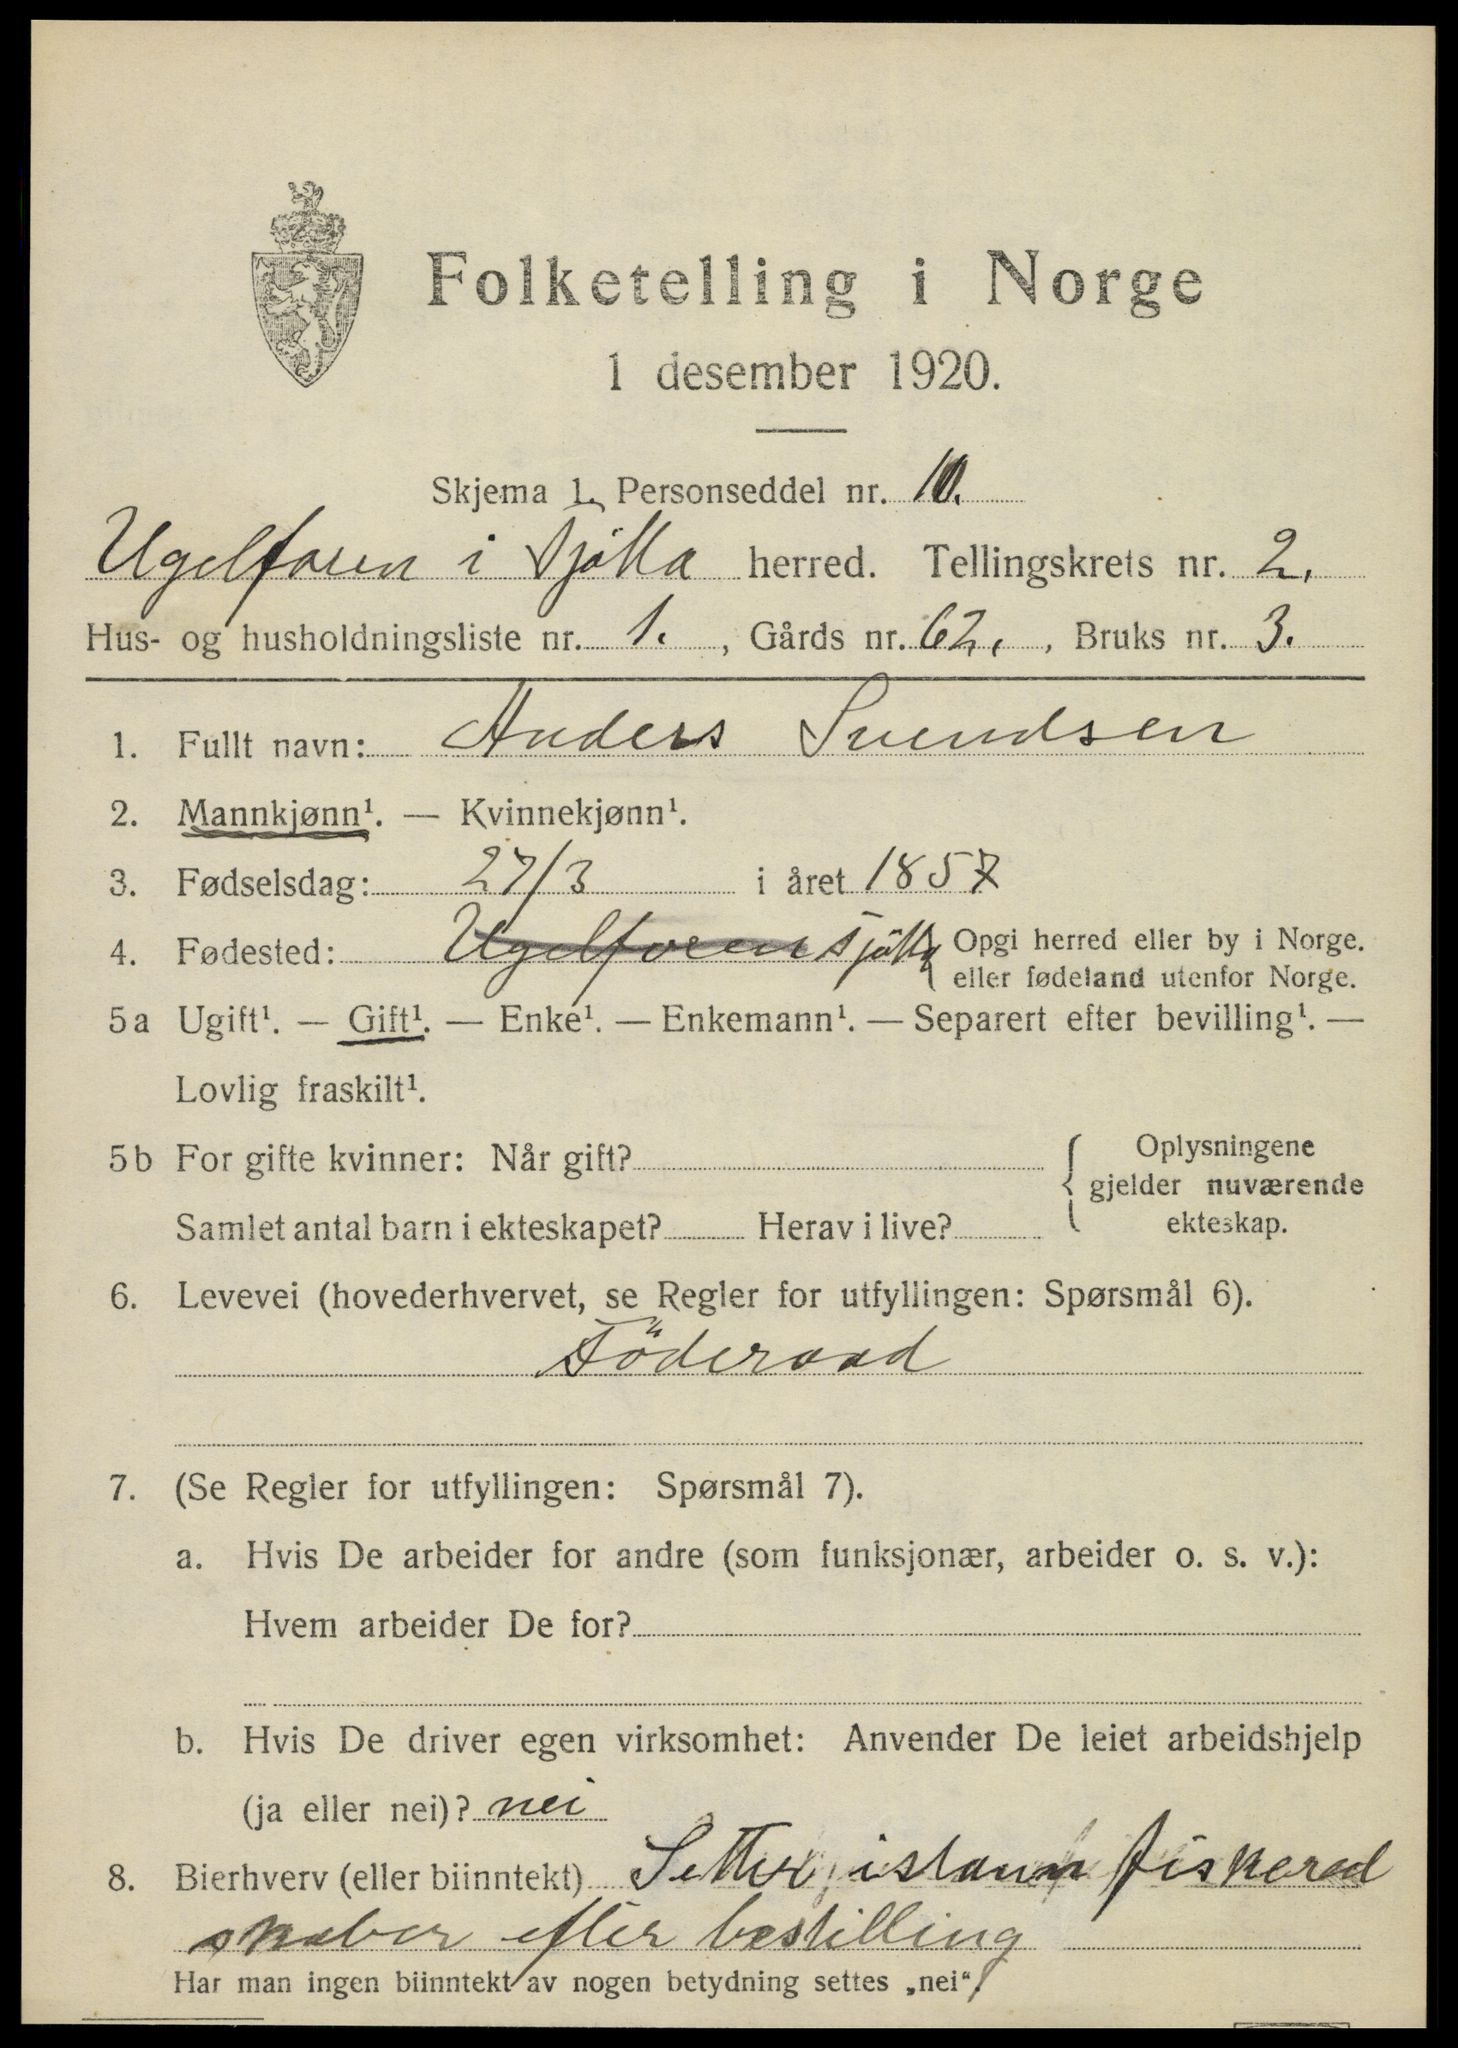 Folketelling i Norge
1 desember 1920.
Skjema 1. Personseddel nr. 10.
Ugelforen i Tjötta herred. Tellingskrets nr. 2.
Hus- og husholdningsliste nr. 1. , Gårds nr. 62. , Bruks nr. 3.
1. Fullt navn: Anders Svendsen
2. Mannkjønn¹. — Kvinnekjønn¹.
3. Fødselsdag: 27/3 i året 1857
4. Fødested: Ugelforen Tjötta { Opgi herred eller by i Norge.
eller fødeland utenfor Norge.
5a Ugift¹. — Gift¹. — Enke¹. — Enkemann¹. — Separert efter bevilling¹. —
Lovlig fraskilt¹.
5b For gifte kvinner: Når gift? { Oplysningene
gjelder nuværende
Samlet antal barn i ekteskapet? Herav i live? ekteskap.
6. Levevei (hovederhvervet, se Regler for utfyllingen: Spørsmål 6).
Föderaad
7. (Se Regler for utfyllingen: Spørsmål 7).
a. Hvis De arbeider for andre (som funksjonær, arbeider o. s. v.):
Hvem arbeider De for?
b. Hvis De driver egen virksomhet: Anvender De leiet arbeidshjelp
(ja eller nei)? nei
8. Bierhverv (eller biinntekt) Setter istann fiskered
skaber efter bestilling
Har man ingen biinntekt av nogen betydning settes „nei“